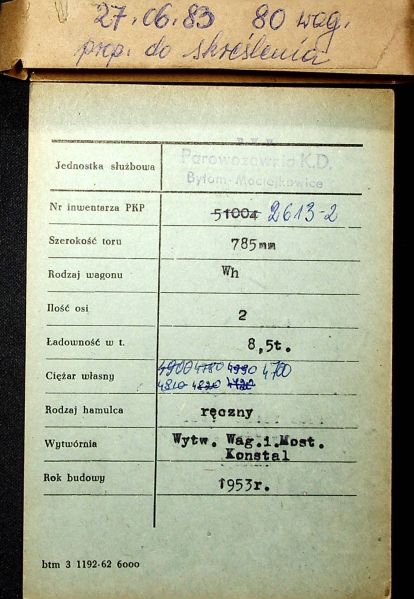 27.06.83 80 wag.
prp. do skreślenia
P K P
Parowozownia K.D.
Jednostka służbowa
Bytom-Maciejkowice
Nr inwentarza PKP 51004 2613-2
Szerokość toru 785mm
Rodzaj wagonu Wh
Ilość osi 2
Ładowność w t. 8,5t.
Ciężar własny 4900 4780 4990 4700
4810 4820 4720
Rodzaj hamulca ręczny
Wytwórnia Wytw. Wag.i.Most.
Konstal
Rok budowy 1953r.
btm 3 1192-62 6ooo